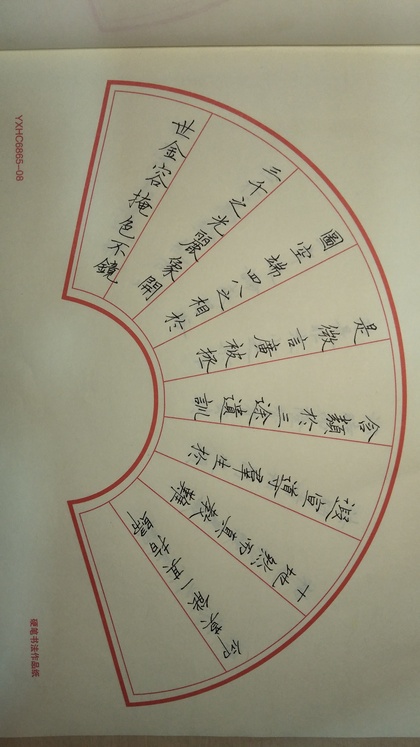 世金容掩色不鏡
三千之光麗象開
圖空端四八之相於
是微言廣被拯
含類於三途遺訓
遐宣導羣生於
十地然而真教難
仰莫能一其旨歸
YXHC6865-08
硬笔书法作品纸